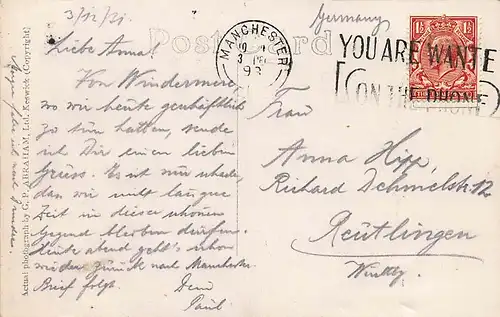 3/12/31
Germany
Post Card
MANCHESTER
3 DE
193
YOU ARE WANTE
ON THE PHONE
1½ 1½
Liebe Anna!
Von Windermere,
wo wir heute geschäftlich
zu tun hatten, sende
ich Dir einen lieben
Gruss. Es ist nur schade,
dass wir nicht lange
Zeit in dieser schönen
Gegend bleiben dürfen.
Heute abend geht's schon
wieder zurück nach Manchester.
Brief folgt. Dein
Paul
Frau
Anna Hipp,
Richard Dehmelstr. 12
Reutlingen
Württbg.
Actual photograph by G. P. ABRAHAM, Ltd., Keswick (Copyright)